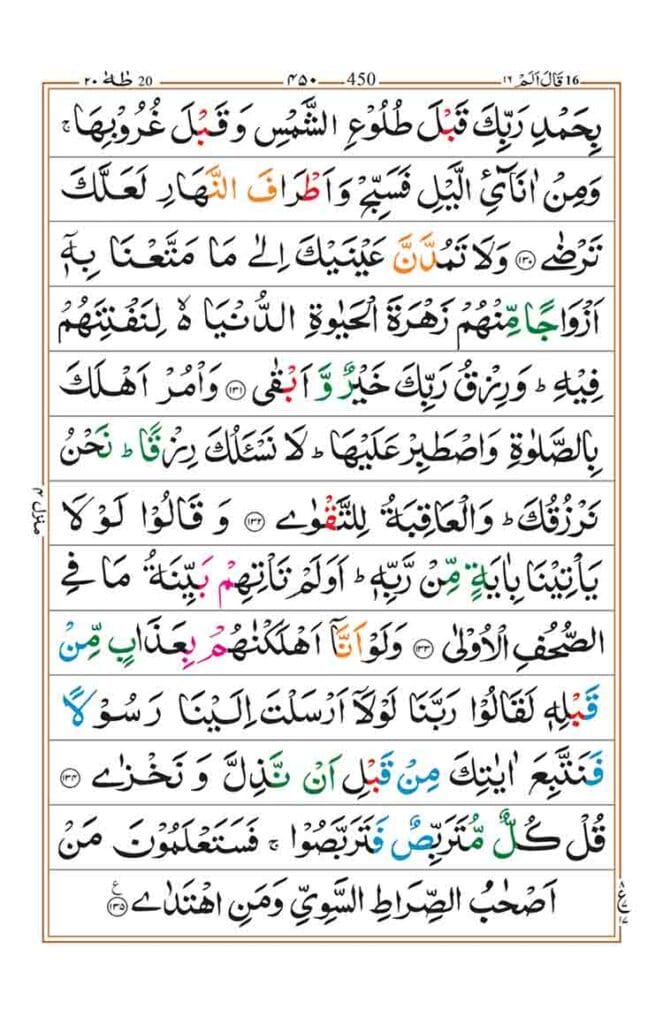 قال الم ١٦ 16 450 ٤٥٠ طٰهٰ ٢٠ 20
بِحَمْدِ رَبِّكَ قَبْلَ طُلُوْعِ الشَّمْسِ وَ قَبْلَ غُرُوْبِهَا ۚ
وَمِنْ اٰنَآئِ الَّيْلِ فَسَبِّحْ وَاَطْرَافَ النَّهَارِ لَعَلَّكَ
تَرْضٰى ﴿١٣٠﴾ وَلَا تَمُدَّنَّ عَيْنَيْكَ اِلٰى مَا مَتَّعْنَا بِهٖٓ
اَزْوَاجًا مِّنْهُمْ زَهْرَةَ الْحَيٰوةِ الدُّنْيَا ۙ۬ لِنَفْتِنَهُمْ
فِيْهِ ؕ وَرِزْقُ رَبِّكَ خَيْرٌ وَّ اَبْقٰى ﴿١٣١﴾ وَاْمُرْ اَهْلَكَ
بِالصَّلٰوةِ وَاصْطَبِرْ عَلَيْهَا ؕ لَا نَسْـَٔلُكَ رِزْقًا ؕ نَحْنُ
نَرْزُقُكَ ؕ وَالْعَاقِبَةُ لِلتَّقْوٰى ﴿١٣٢﴾ وَ قَالُوْا لَوْ لَا
يَاْتِيْنَا بِاٰيَةٍ مِّنْ رَّبِّهٖ ؕ اَوَلَمْ تَاْتِهِمْ بَيِّنَةُ مَا فِى
الصُّحُفِ الْاُوْلٰى ﴿١٣٣﴾ وَلَوْ اَنَّاۤ اَهْلَكْنٰهُمْ بِعَذَابٍ مِّنْ
قَبْلِهٖ لَقَالُوْا رَبَّنَا لَوْلَاۤ اَرْسَلْتَ اِلَيْنَا رَسُوْلًا
فَنَتَّبِعَ اٰيٰتِكَ مِنْ قَبْلِ اَنْ نَّذِلَّ وَ نَخْزٰى ﴿١٣٤﴾
قُلْ كُلٌّ مُّتَرَبِّصٌ فَتَرَبَّصُوْا ۚ فَسَتَعْلَمُوْنَ مَنْ
اَصْحٰبُ الصِّرَاطِ السَّوِيِّ وَمَنِ اهْتَدٰى ﴿١٣٥﴾
منزل ٤